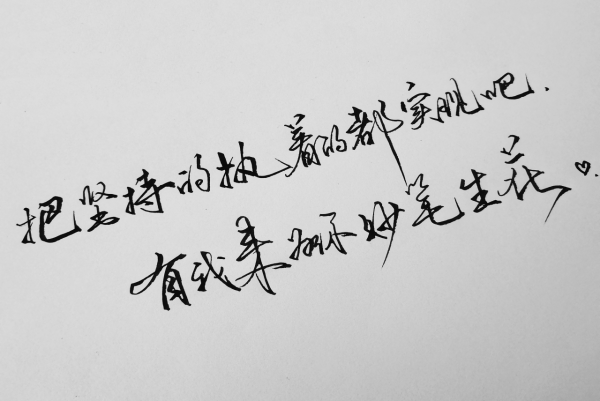 把坚持的执着的都实现吧.
有我来挥妙笔生花♡.